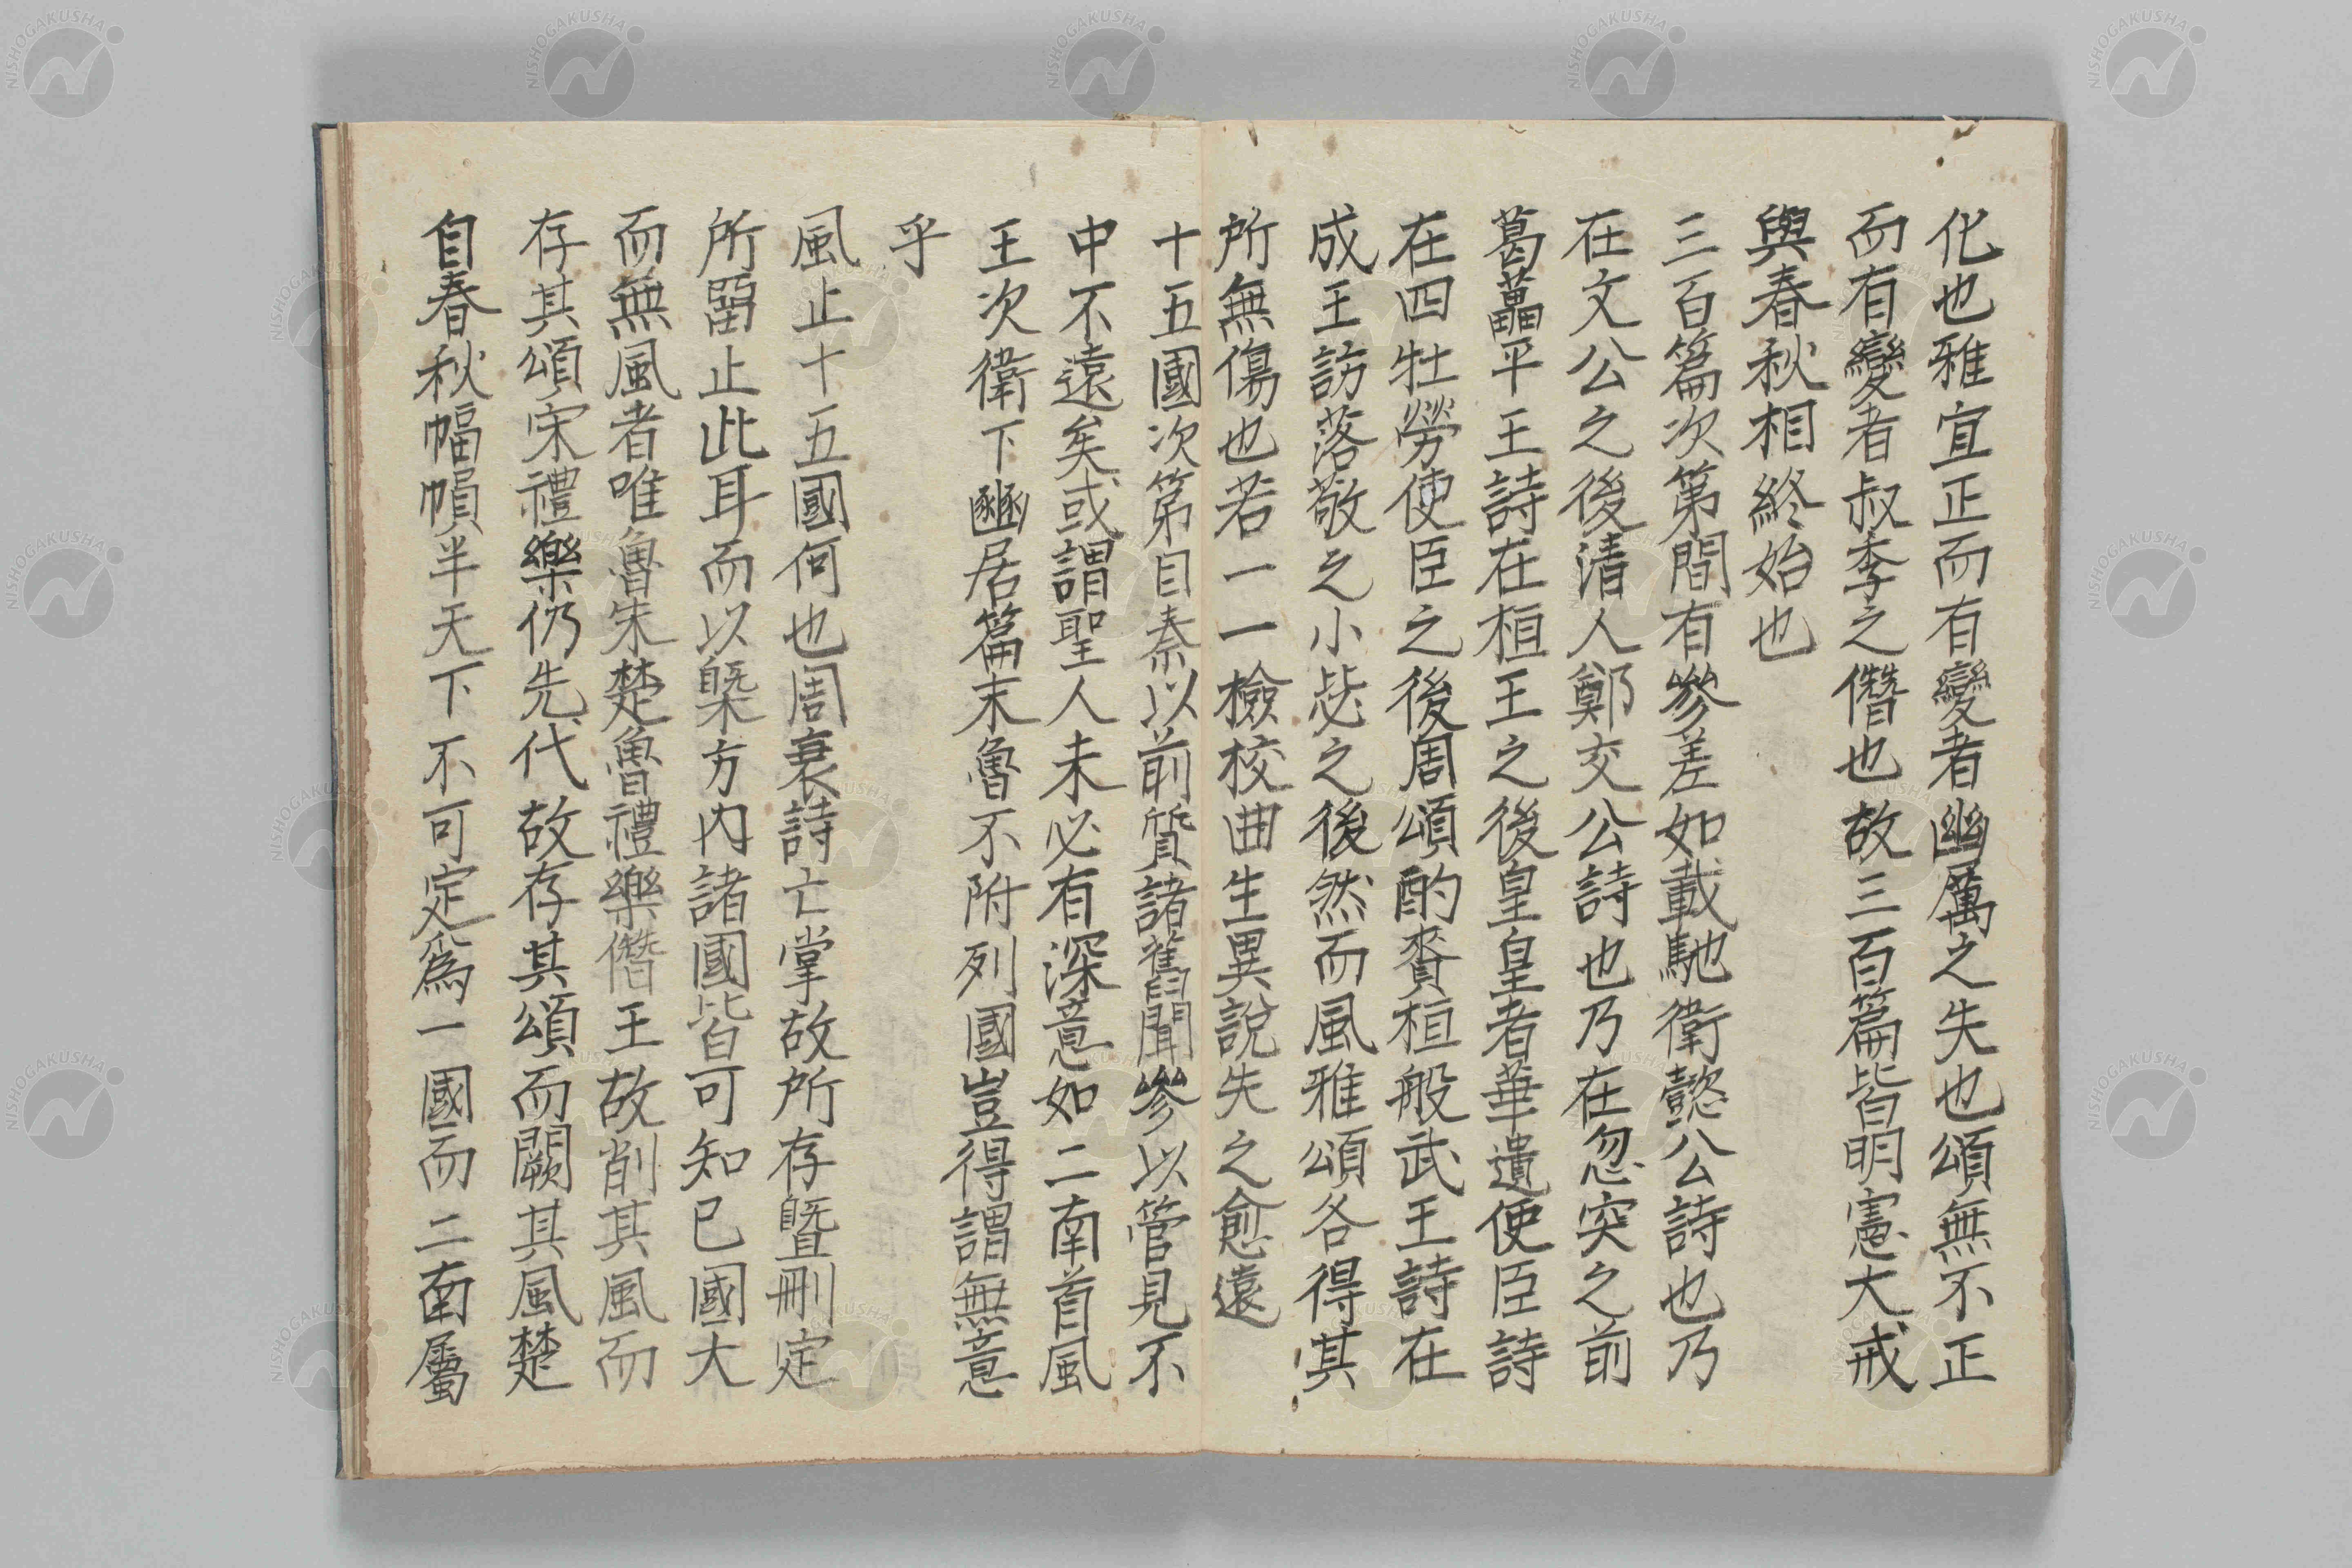 化也雅宜正而有變者幽厲之失也頌無不正
而有變者叔季之僭也故三百篇皆明憲大戒
與春秋相終始也
三百篇次第間有參差如載馳衛懿公詩也乃
在文公之後清人鄭交公詩也乃在忽突之前
葛藟平王詩在桓王之後皇皇者華遣使臣詩
在四牡勞使臣之後周頌酌賚桓般武王詩在
成王訪落敬之小毖之後然而風雅頌各得其
所無傷也若一一檢校曲生異說失之愈遠
十五國次第自秦以前質諸舊聞參以管見不
中不遠矣或謂聖人未必有深意如二南首風
王次衛下豳居篇末魯不附列國豈得謂無意
乎
風止十五國何也周衰詩亡掌故所存曁刪定
所畱止此耳而以槩方內諸國皆可知已國大
而無風者唯魯宋楚魯禮樂僭王故削其風而
存其頌宋禮樂仍先代故存其頌而闕其風楚
自春秋幅㡓半天下不可定爲一國而二南屬
NISHOGAKUSHA